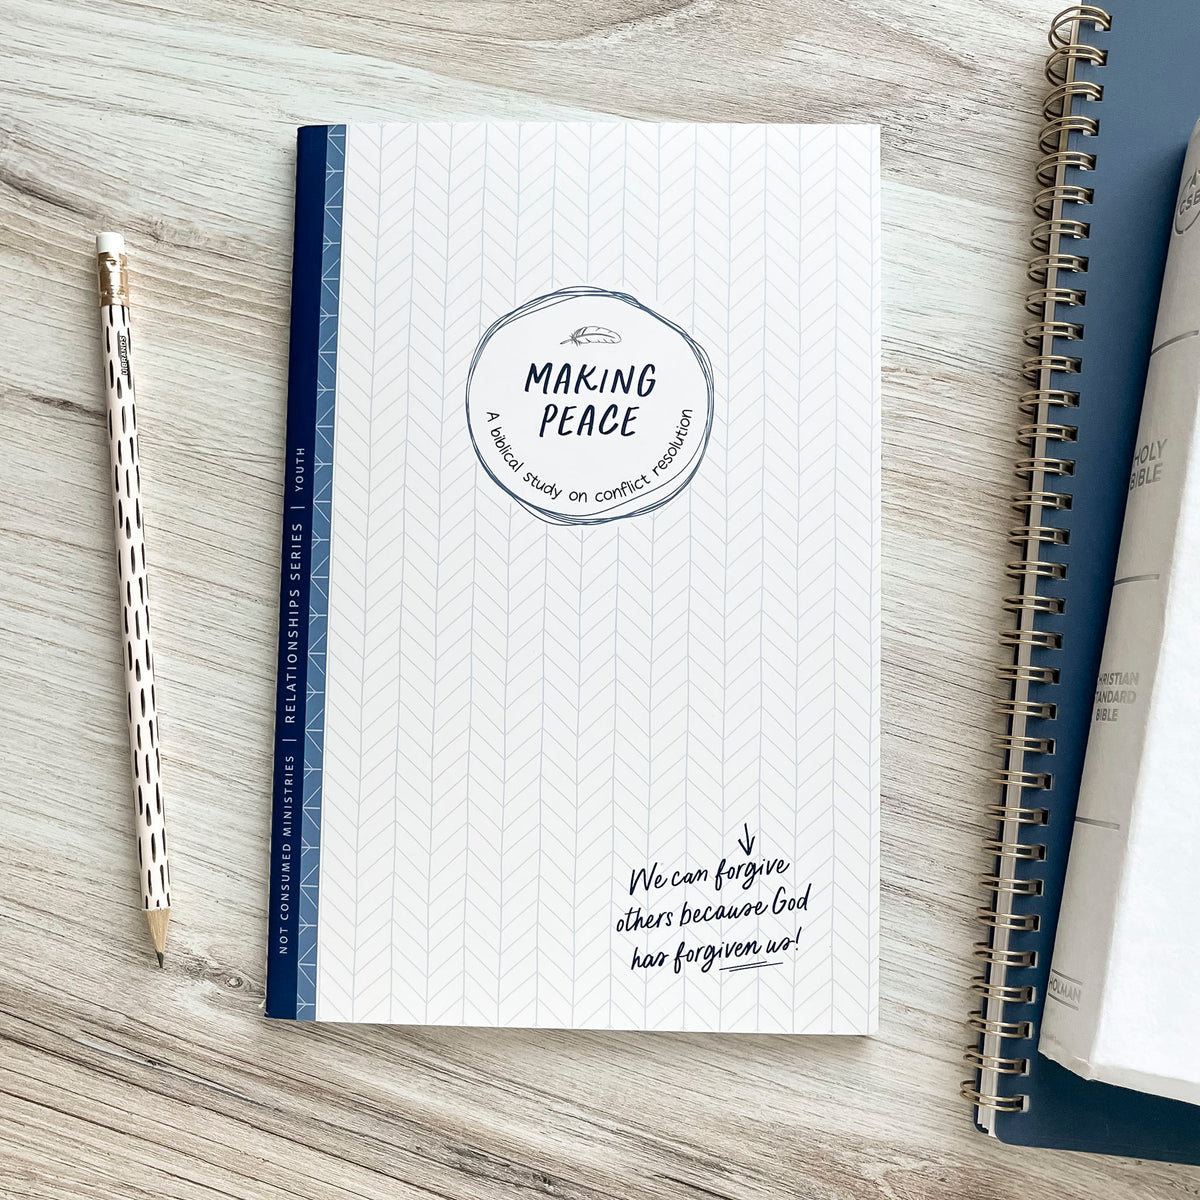 MAKING
PEACE
A biblical study on conflict resolution
We can forgive
others because God
has forgiven us!
NOT CONSUMED MINISTRIES | RELATIONSHIPS SERIES | YOUTH
U BRANDS
CSB
HOLY
BIBLE
CHRISTIAN
STANDARD
BIBLE
HOLMAN